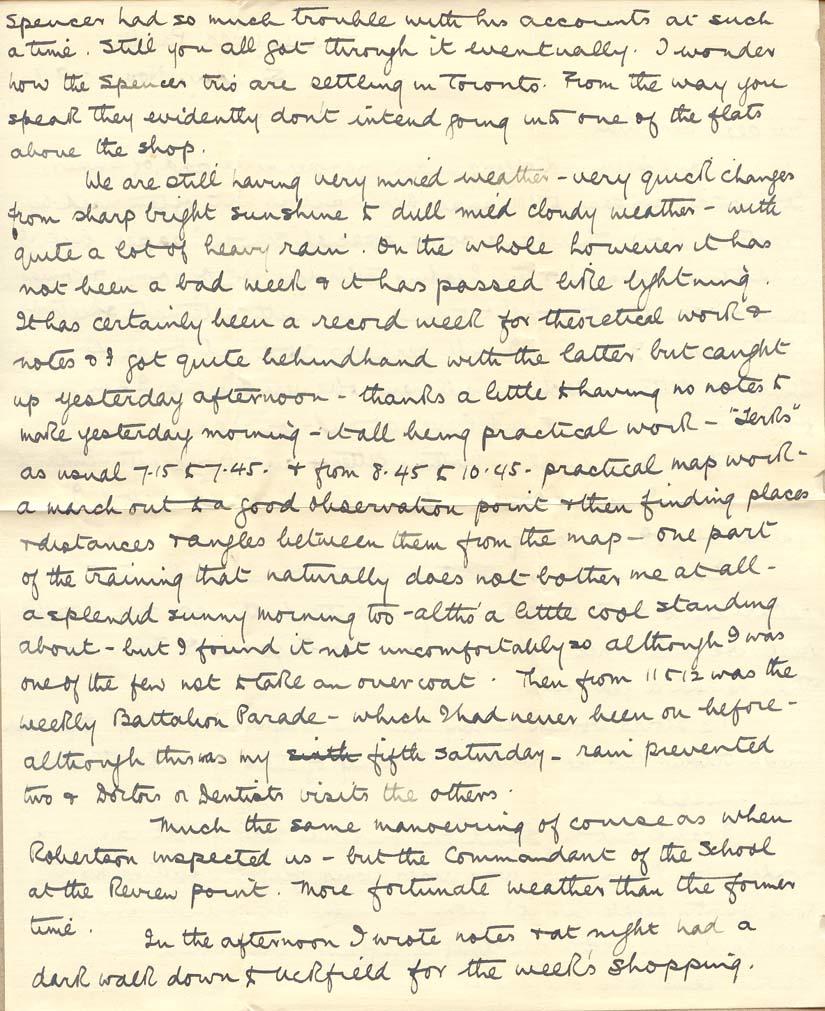 Spencer had so much trouble with his accounts at such
a time. Still you all got through it eventually. I wonder
how the Spencer trio are settling in Toronto. From the way you
speak they evidently don't intend going into one of the flats
above the shop.
We are still having very mixed weather - very quick changes
from sharp bright sunshine to dull mild cloudy weather - with
quite a lot of heavy rain. On the whole however it has
not been a bad week & it has passed like lightning.
It has certainly been a record week for theoretical work &
notes & I got quite behindhand with the latter but caught
up yesterday afternoon - thanks a little to having no notes to
make yesterday morning - it all being practical work - "Jerks"
as usual 7.15 to 7.45. & from 8.45 to 10.45. practical map work -
a march out to a good observation point & then finding places
& distances & angles between them from the map - one part
of the training that naturally does not bother me at all -
a splendid sunny morning too - altho' a little cool standing
about - but I found it not uncomfortably so although I was
one of the few not to take an overcoat. Then from 11 to 12 was the
weekly Battalion Parade - which I had never been on before -
although this was my sixth fifth Saturday - rain prevented
two & Doctors or Dentists visits the others.
Much the same manoevering of course as when
Robertson inspected us - but the Commandant of the School
at the Review point. More fortunate weather than the former
time.
In the afternoon I wrote notes & at night had a
dark walk down to Uckfield for the week's shopping.